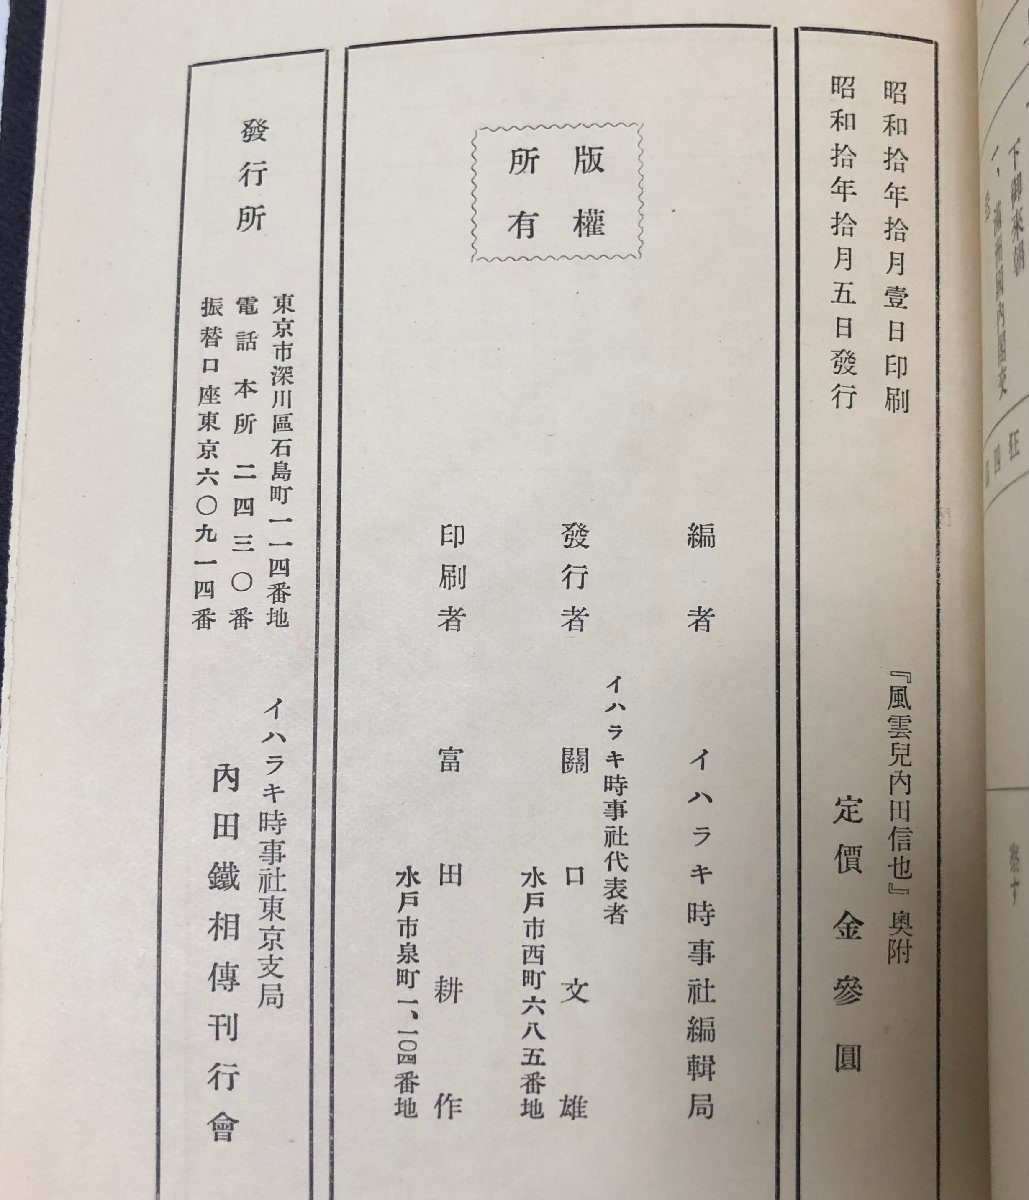 昭和拾年拾月壹日印刷
昭和拾年拾月五日發行
『風雲兒內田信也』奧附
定價金參圓
版權
所有
編者 イハラキ時事社編輯局
イハラキ時事社代表者
發行者 關口文雄
水戶市西町六八五番地
印刷者 富田耕作
水戶市泉町一、一〇四番地
發行所
東京市深川區石島町一一四番地
電話本所二四三〇番
振替口座東京六〇九一四番
イハラキ時事社東京支局
內田鐵相傳刊行會